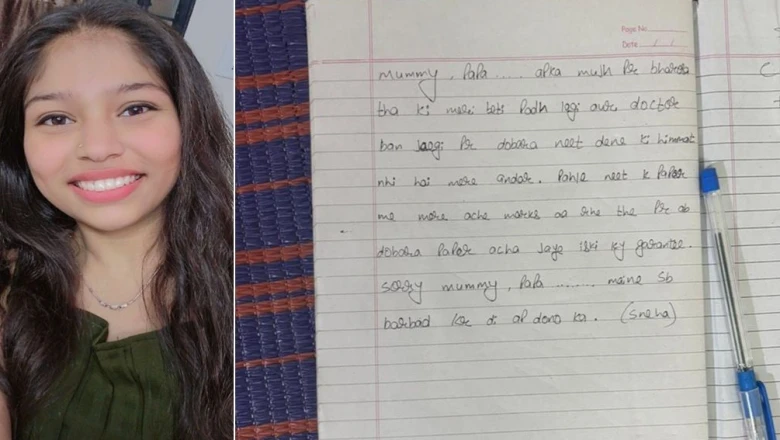 Page No.
Date
mummy, papa ..... apka mujh pr bharosa
tha ki meri beti padh legi aur doctor
ban jaegi pr dobara neet dene ki himmat
nhi hai mere andar. Pahle neet k paper
me mere ache marks aa rhe the pr ab
dobara paper acha jaye iski ky garantee.
sorry mummy, papa ........ maine sb
barbad kr di ap dono ka. (sneha)